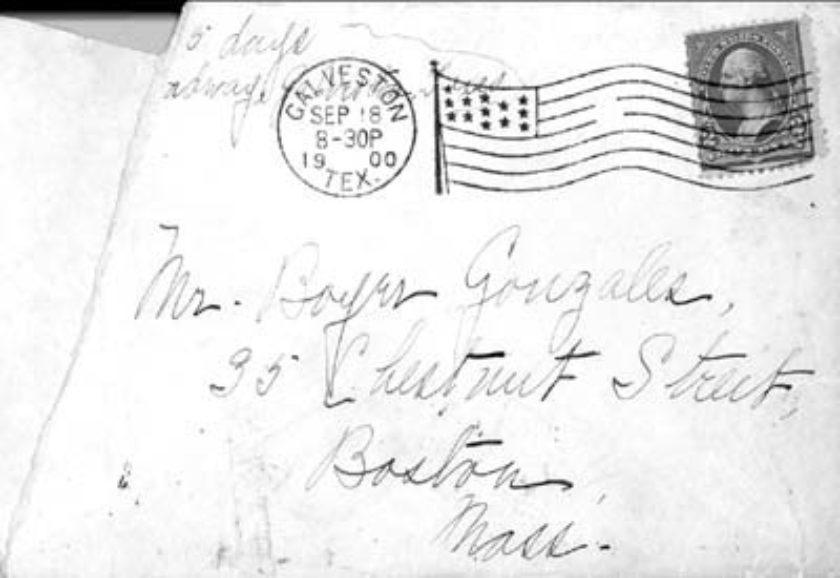 5 days
GALVESTON
SEP 18
8-30P
19 00
TEX.
Mr. Boyer Gonzales,
35 Chestnut Street,
Boston,
Mass.